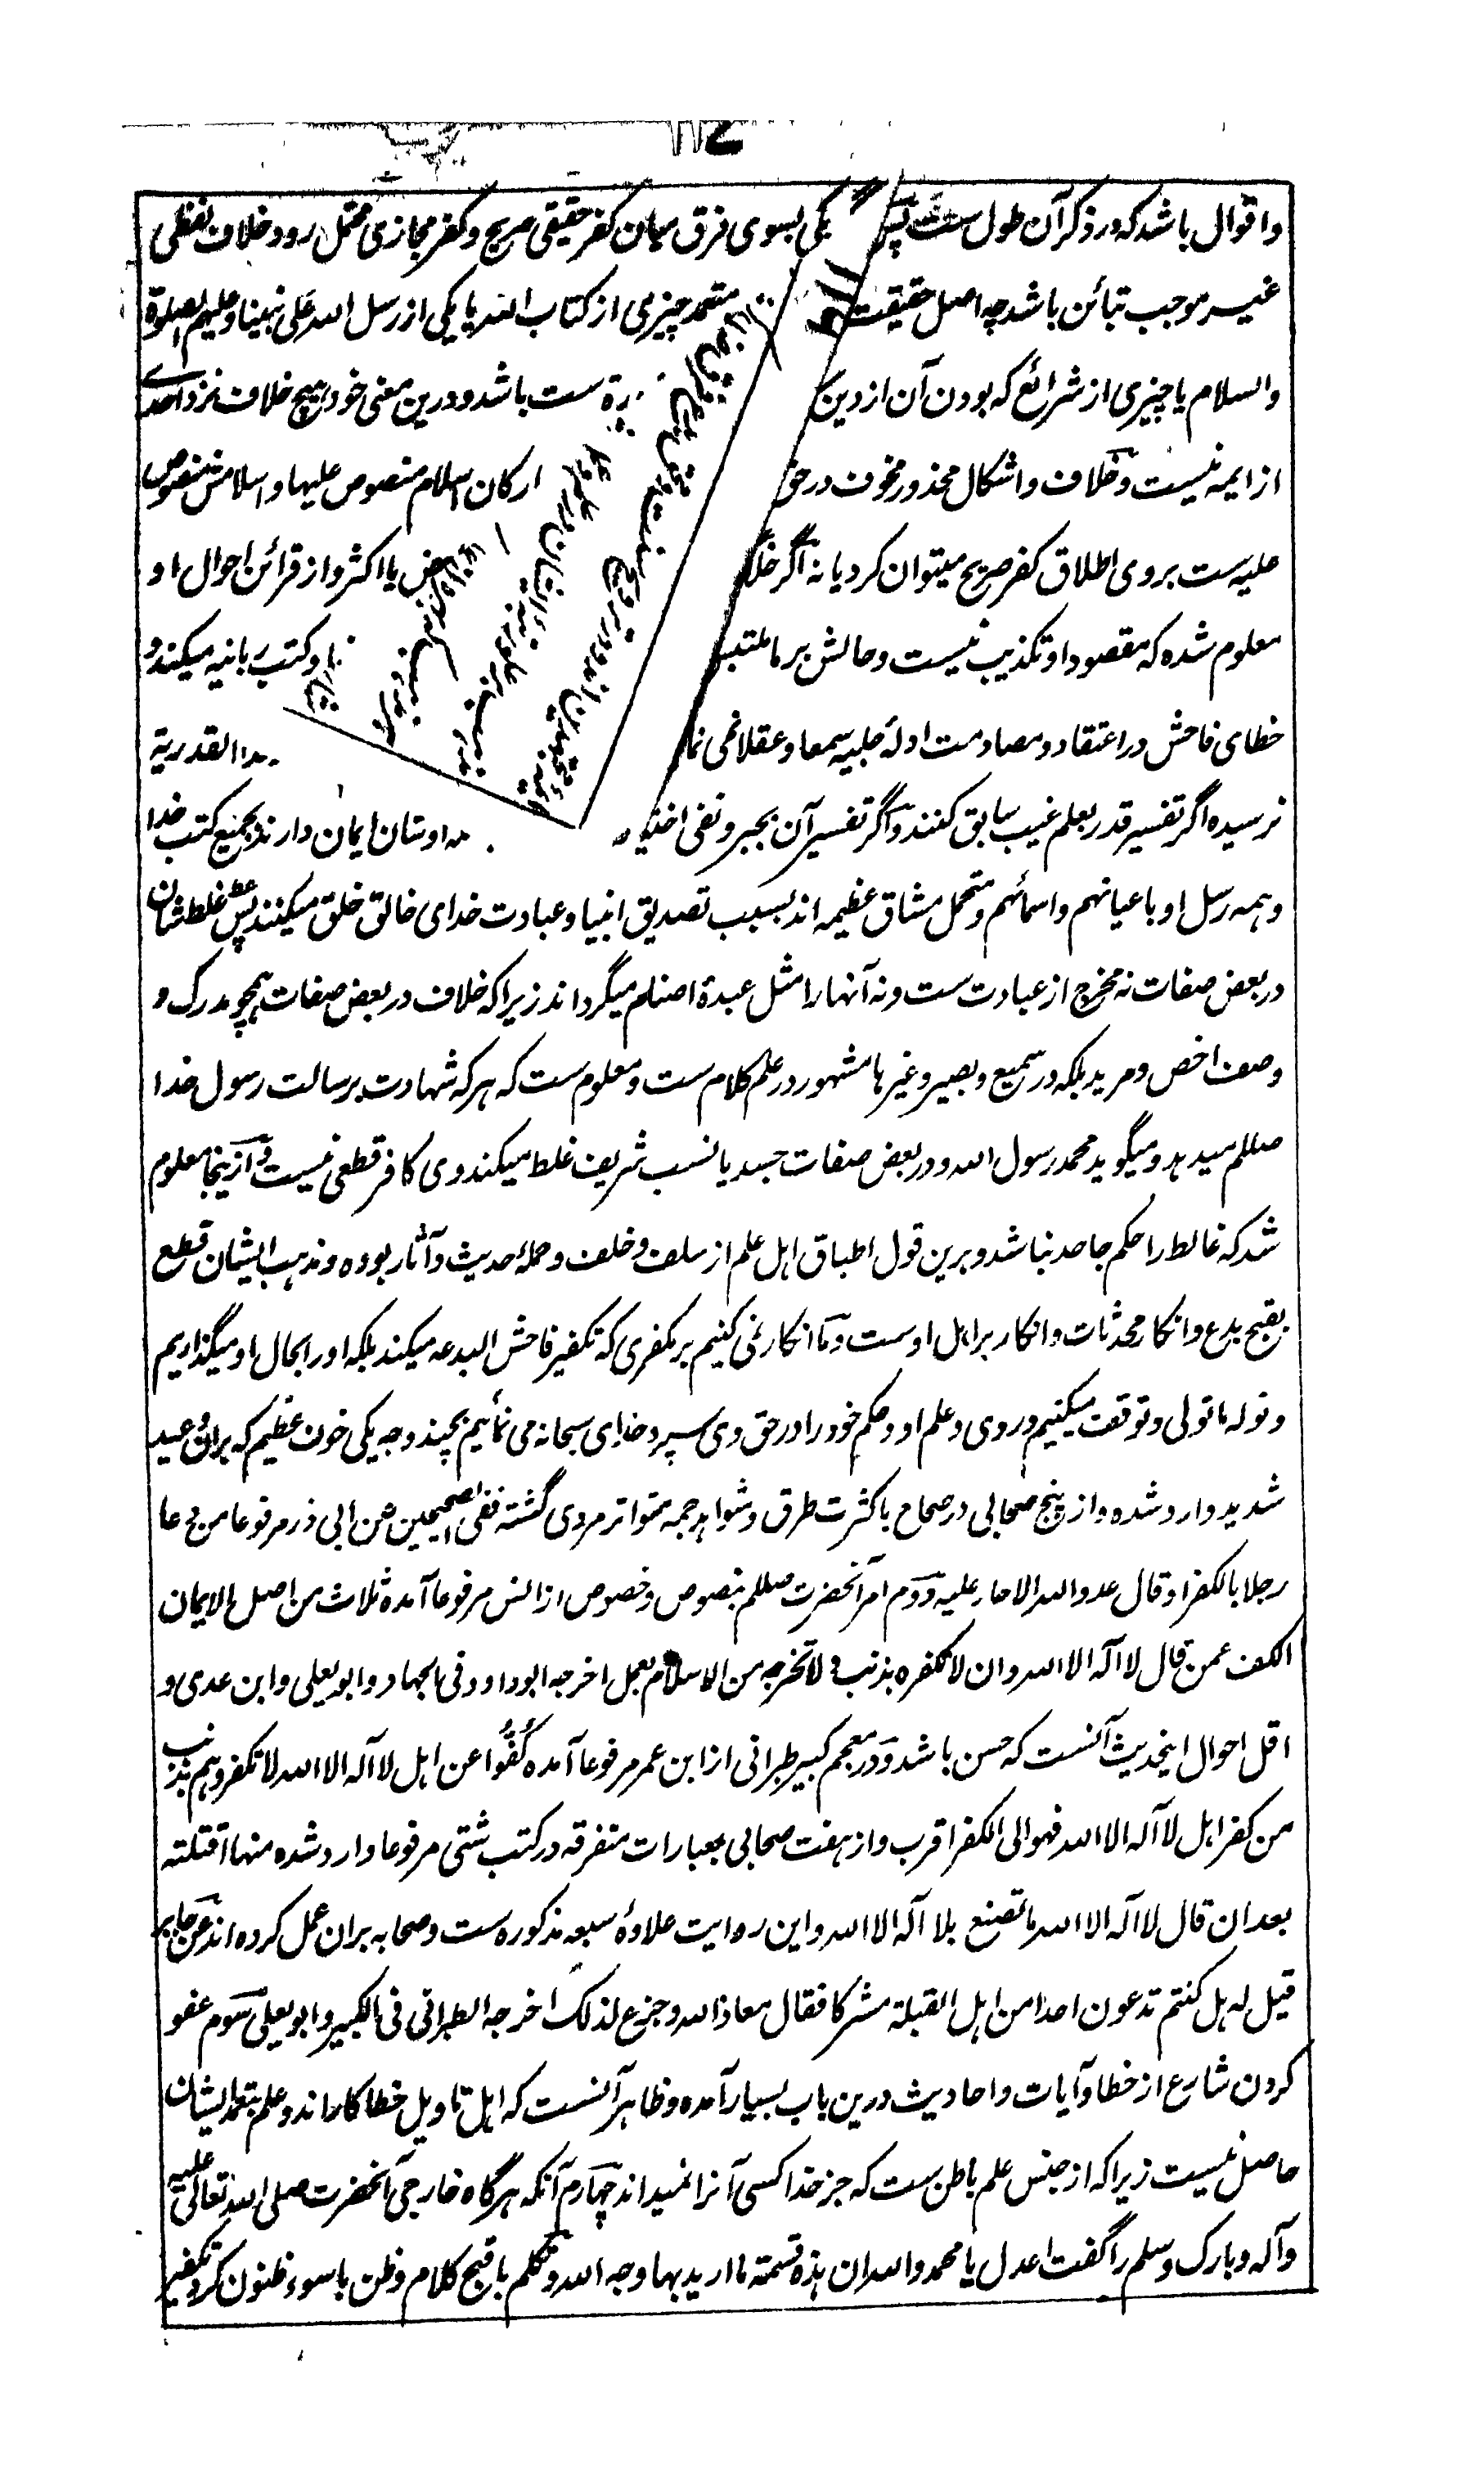 واقوال باشد که در ذکر آن طول ست پس یکی بسوی فرق میان کفر حقیقی صریح و کفر مجازی محتمل رود خلاف لفظی
غیر موجب تبائن باشد چه اصل حقیقت متعمد چیزی از کتاب الله یا یکی از رسل الله علی نبینا و علیهم الصلوة
والسلام یا چیزی از شرائع که بودن آن از دین ست باشد و درین معنی خود هیچ خلاف نزد احدے
از ایمه نیست و خلاف و اشکال محذور مخوف در حق ارکان اسلام منصوص علیها و اسلامش منصوص
علیه ست بر وی اطلاق کفر صریح میتوان کرد یا نه اگر یا اکثر و از قرائن احوال او
معلوم شده که مقصود او تکذیب نیست و حالش بر ما ملتبس و کتب ربانیه میکند و
خطای فاحش در اعتقاد و مصادمت ادلهٔ جلیه سمعا و عقلا القدریة
نرسیده اگر تفسیر قدر بعلم غیب سابق کنند و اگر تفسیر آن بجبر و نفی اوشان ایمان دارند بجمیع کتب خدا
و همه رسل او باعیانهم و اسمائهم و متحمل مشاق عظیمه اند بسبب تصدیق انبیا و عبادت خدای خالق خلق میکنند پس غلط شان
در بعض صفات نه مخرج از عبادت ست و نه آنها را مثل عبدهٔ اصنام میگرداند زیرا که خلاف در بعض صفات همچو مدرک و
وصف اخص و مرید بلکه در سمیع و بصیر و غیرها مشهور در علم کلام ست و معلوم ست که هر که شهادت برسالت رسول خدا
صللم میدهد و میگوید محمد رسول الله و در بعض صفات جسد یا نسب شریف غلط میکند وی کافر قطعی نیست و از ینجا معلوم
شد که غالط را حکم جاحد نباشد و برین قول اطباق اهل علم از سلف و خلف و حملهٔ حدیث و آثار بوده و مذهب ایشان قطع
بقبح بدع و انکار محدثات و انکار بر اهل اوست و ما انکار نمی کنیم بر مکفری که تکفیر فاحش البدعه میکند بلکه او را بحال او میگذاریم
و نوله ما تولی و توقف میکنیم در وی و علم او و حکم خود را در حق وی سپرد خدای سبحانه می نمائیم بچند وجه یکی خوف عظیم که بران وعید
شدید وارد شده و از پنج صحابی در صحاح با کثرت طرق و شواهد جمه متواتر مروی گشته ففی الصحیحین عن ابی ذر مرفوعا من دعا
رجلا بالکفر او قال عدو الله الا حار علیه دوم امر آنحضرت صللم بنصوص و خصوص از انس مرفوعا آمده ثلاث من اصل الایمان
الکف عمن قال لا آله الا الله وان لا نکفره بذنب و لا نخرجه من الاسلام بعمل اخرجه ابو داود فی الجهاد و ابو یعلی و ابن عدی و
اقل احوال اینحدیث آنست که حسن باشد و در معجم کبیر طبرانی از ابن عمر مرفوعا آمده کُفُّوا عن اهل لا آله الا الله لا تکفروهم بذنب
من کفر اهل لا آله الا الله فهو الی الکفر اقرب و از هفت صحابی بعبارات متفرقه در کتب شتی مرفوعا وارد شده منها اقتلته
بعد ان قال لا اله الا الله ما تصنع بلا آله الا الله و این روایت علاوهٔ سبعه مذکوره ست و صحابه بران عمل کرده اند عن جابر
قیل له هل کنتم تدعون احدا من اهل القبلة مشرکا فقال معاذ الله و جزع لذلک اخرجه الطبرانی فی الکبیر و ابو یعلی سوم عفو
کردن شارع از خطا و آیات و احادیث درین باب بسیار آمده و ظاهر آنست که اهل تاویل خطا کار اند و علم بتعمد ایشان
حاصل نیست زیرا که از جنس علم باطن ست که جز خدا کسی آنرا نمیداند چهارم آنکه هرگاه خارجی آنحضرت صلی الله تعالی علیه
و آله و بارک و سلم را گفت اعدل یا محمد والله ان هذه قسمة ما ارید بها وجه الله و تکلم باقبح کلام و ظن باسوء ظنون کرد تکفیر